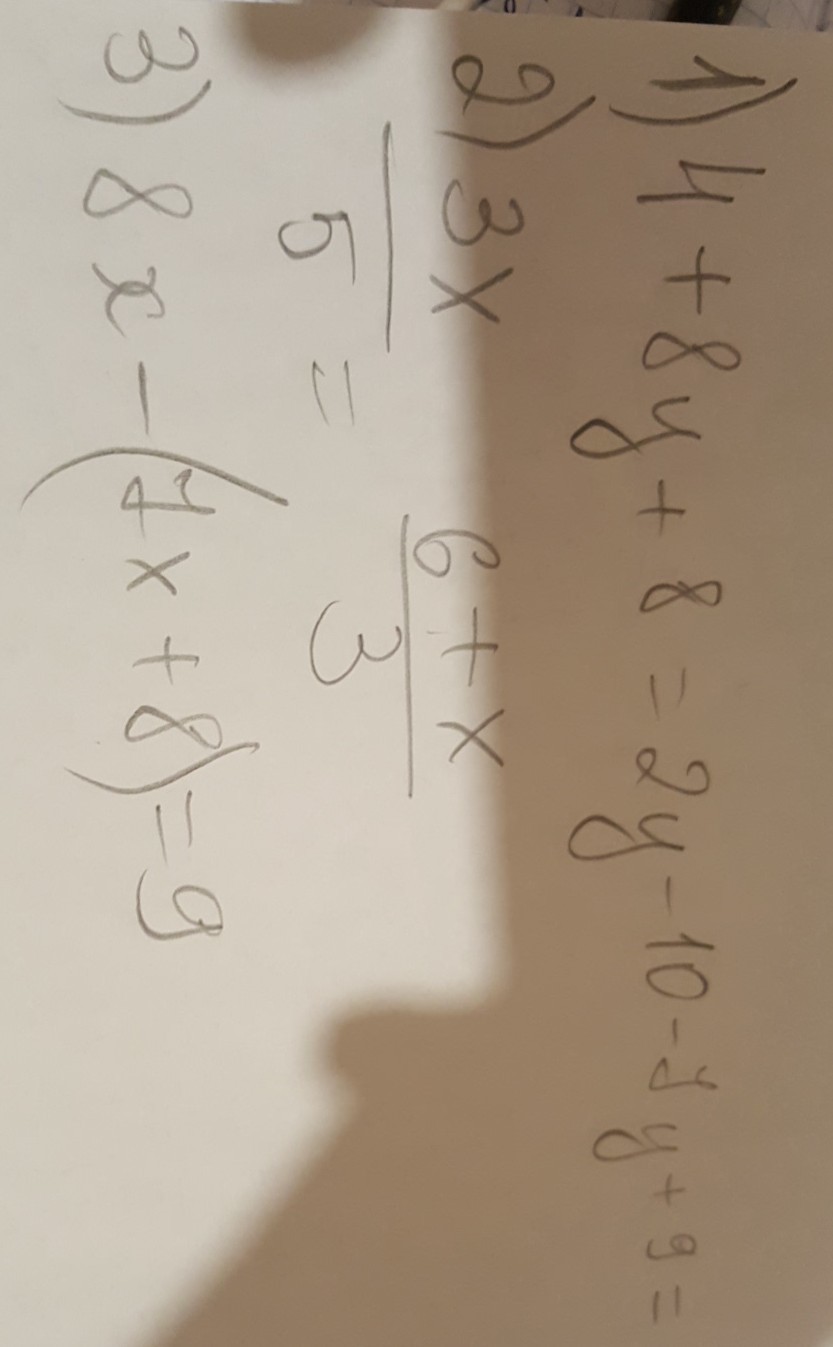 1) 4 + 8y + 8 = 2y - 10 - 7y + 9 =
2) 3x / 5 = 6 + x / 3
3) 8x - (7x + 8) = 9